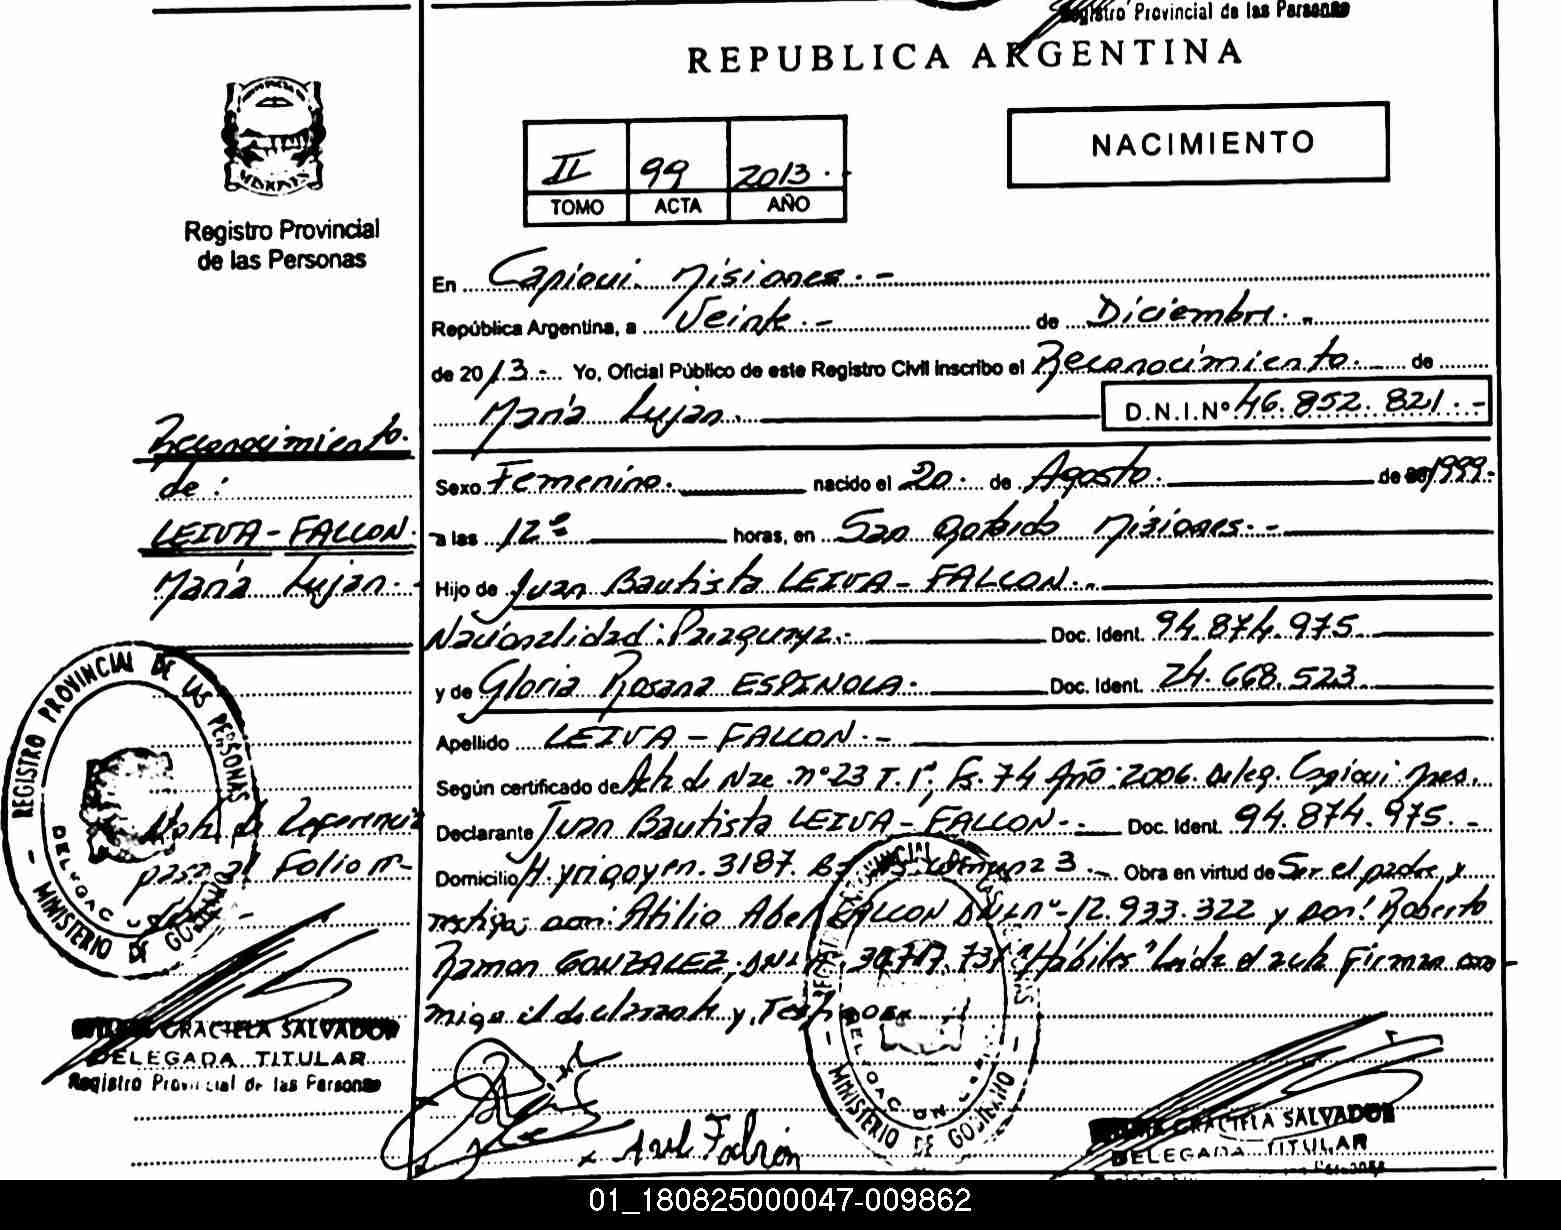 Registro Provincial de las Personas
REPUBLICA ARGENTINA
NACIMIENTO
II 99 2013.-
TOMO ACTA AÑO
Registro Provincial
de las Personas
En Capiovi. Misiones.-
República Argentina, a Veinte.- de Diciembre.-
de 2013.- Yo, Oficial Público de este Registro Civil inscribo el Reconocimiento. de
María Luján. D.N.I.Nº 46.852.821.-
Sexo Femenino. nacido el 20. de Agosto. de 1999.-
a las 12 horas, en San Misiones.-
Hijo de Juan Bautista LEIVA-FALCON.-
Nacionalidad: Paraguaya.- Doc. Ident. 94.874.975.
y de Gloria Rosana ESPINOLA. Doc. Ident. 24.668.523.
Apellido LEIVA-FALCON.-
Según certificado de Acta de Nac. nº 23 T. 1º, Fs. 74 Año: 2006. Deleg. Capiovi Mnes.
Declarante Juan Bautista LEIVA-FALCON.- Doc. Ident. 94.874.975.-
Domicilio H. Yrigoyen. 3187. 3.- Obra en virtud de Ser el padre y
testigos don: Atilio Abel FALCON DNI nº-12.933.322 y don: Roberto
Ramon GONZALEZ, DNI "Hábiles" Leida el acta Firman con
migo el declarante y Testigos.
Reconocimiento.
de:
LEIVA-FALCON.
María Luján.-
REGISTRO PROVINCIAL DE LAS PERSONAS
DELEGAC
- MINISTERIO DE GOBIERNO
Nota de Referencia
pasa al Folio nº
GRACIELA SALVADOR
DELEGADA TITULAR
Registro Provincial de las Personas
REGISTRO PROVINCIAL DE LAS PERSONAS
DELEGACION
- MINISTERIO DE GOBIERNO -
GRACIELA SALVADOR
DELEGADA TITULAR
01_180825000047-009862